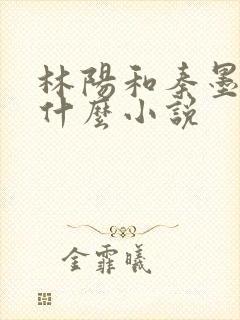 林陽和秦墨
什麼小說
金霏曦